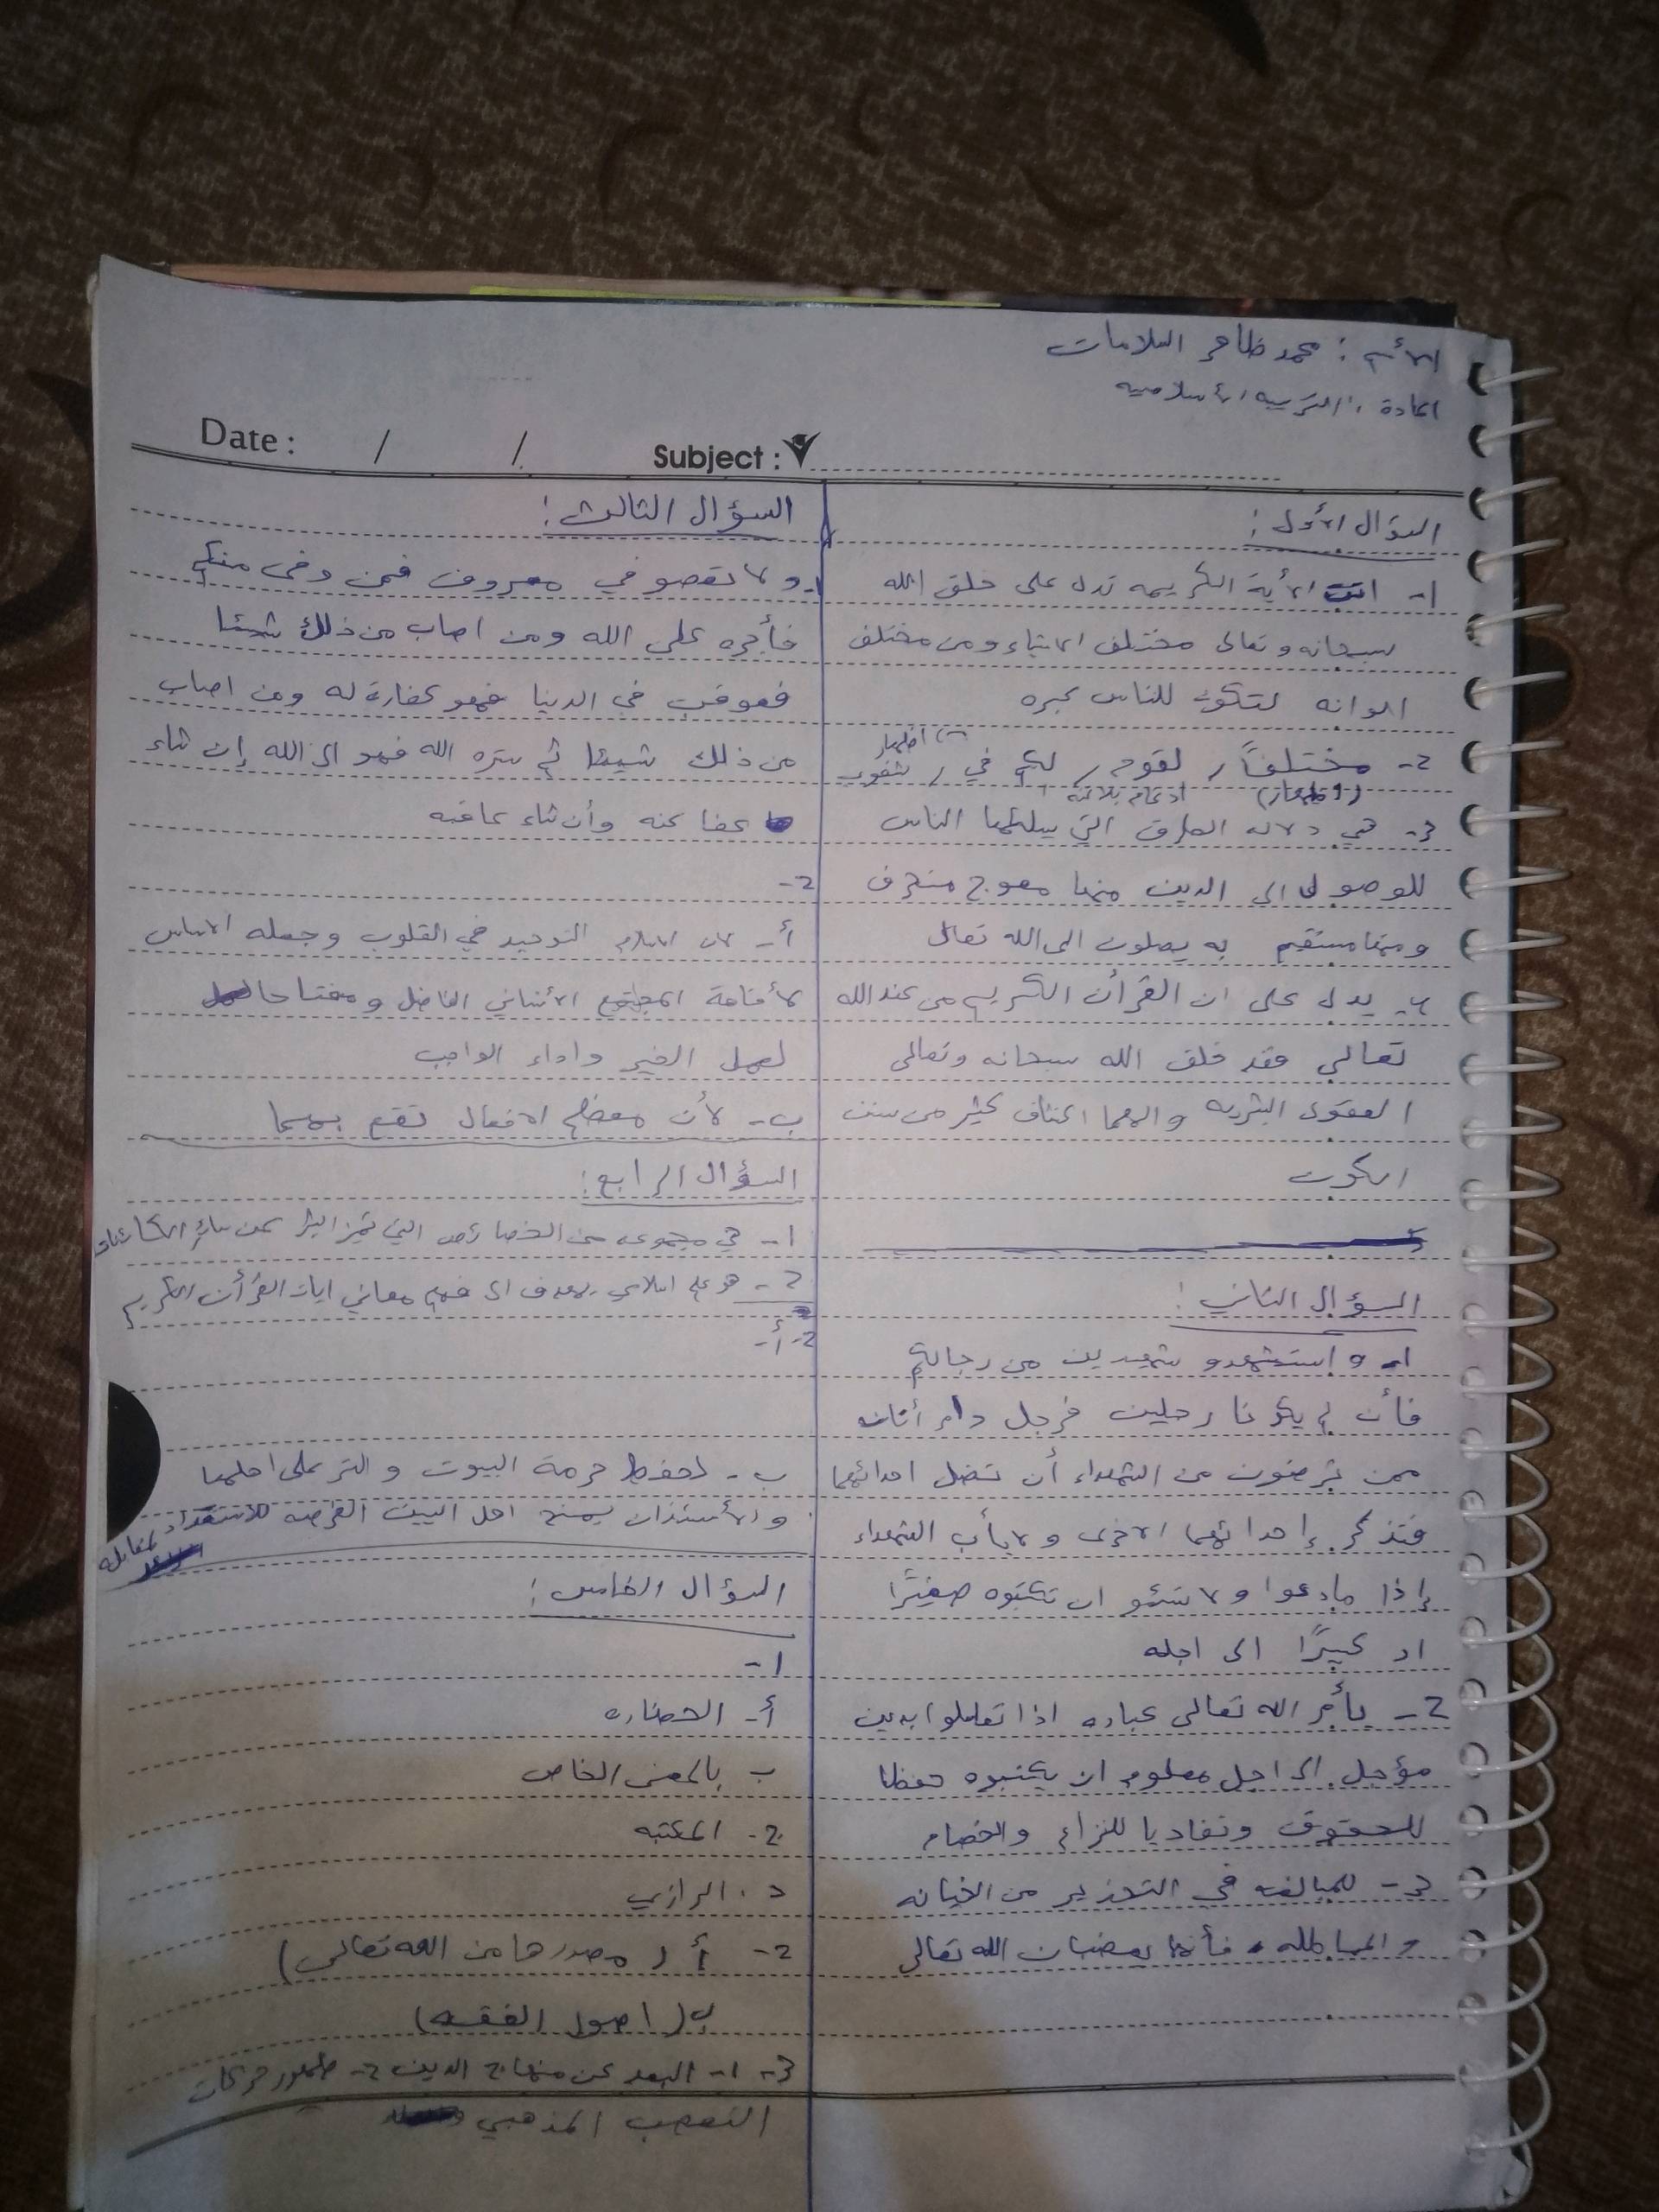 الأسم : محمد ظاهر السلامات
المادة : التربيه الأسلاميه
Date : / / Subject :
السؤال الأول :
1- الأية الكريمه تدل على خلق الله
سبحانه وتعالى مختلف الاشياء ومن مختلف
الوانه لتكون للناس عبره
2- مختلفاً / لقوم / لكم في /
(اظهار) ادغام بلاغنه اظهار
3- هي دلاله الطرق التي يسلكها الناس
للوصول الى الدين منها معوج منحرف
ومنها مستقيم به يصلون الى الله تعالى
4- يدل على ان القرأن الكريم من عند الله
تعالى فقد خلق الله سبحانه وتعالى
العقول البشريه والهمها اكتشاف كثير من سنن
الكون
السؤال الثاني :
1- و استشهدو شهيدين من رجالكم
فأن لم يكونا رجلين فرجل وامرأتان
ممن ترضون من الشهداء أن تضل احدائهما
فتذكر إحدائهما الاخرى ولا يأب الشهداء
إذا مادعوا ولا تسئمو ان تكتبوه صغيرًا
او كبيرًا الى اجله
2- يأمر الله تعالى عباده اذا تعاملوا بدين
مؤجل الى اجل معلوم ان يكتبوه حفظا
للحقوق وتفاديا للنزاع والخصام
3- للمبالغه في التحذير من الخيانه
والمماطله فأنها يغضبان الله تعالى
السؤال الثالث :
1- ولا تعصو في معروف فمن وفى منكم
فأجره على الله ومن اصاب من ذلك شيئا
فعوقب في الدنيا فهو كفارة له ومن اصاب
من ذلك شيئا ثم ستره الله فهو الى الله إن شاء
عفا عنه وأن شاء عاقبه
2-
أ- لان الاسلام التوحيد في القلوب وجعله الاساس
لأقامة المجتمع الأنساني الفاضل ومفتاحا
لعمل الخير واداء الواجب
ب- لأن معظم الافعال تقع بهما
السؤال الرابع :
1- هي مجموعه من الخصائص التي تميز البشر عن سائر الكائنات
2- هو علم اسلامي يهدف الى فهم معاني ايات القرأن الكريم
2- أ-
ب- لحفظ حرمة البيوت والتر على اهلها
والأستئذان يمنح اهل البيت الفرصه للأستعداد لمقابله
السؤال الخامس :
1-
أ- الحضاره
ب بالمعنى الخاص
2- المكتبه
د. الرازي
2- أ ( مصدرها من الله تعالى )
ب ( اصول الفقه )
3- 1- البعد عن منهاج الدين 2- ظهور حركات
التعصب المذهبي